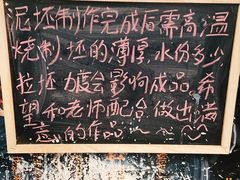 泥坯制作完成后需高温
烧制,坯的薄厚,水份多少
拉坯力度会影响成品。希
望和老师配合做出满
意的作品~